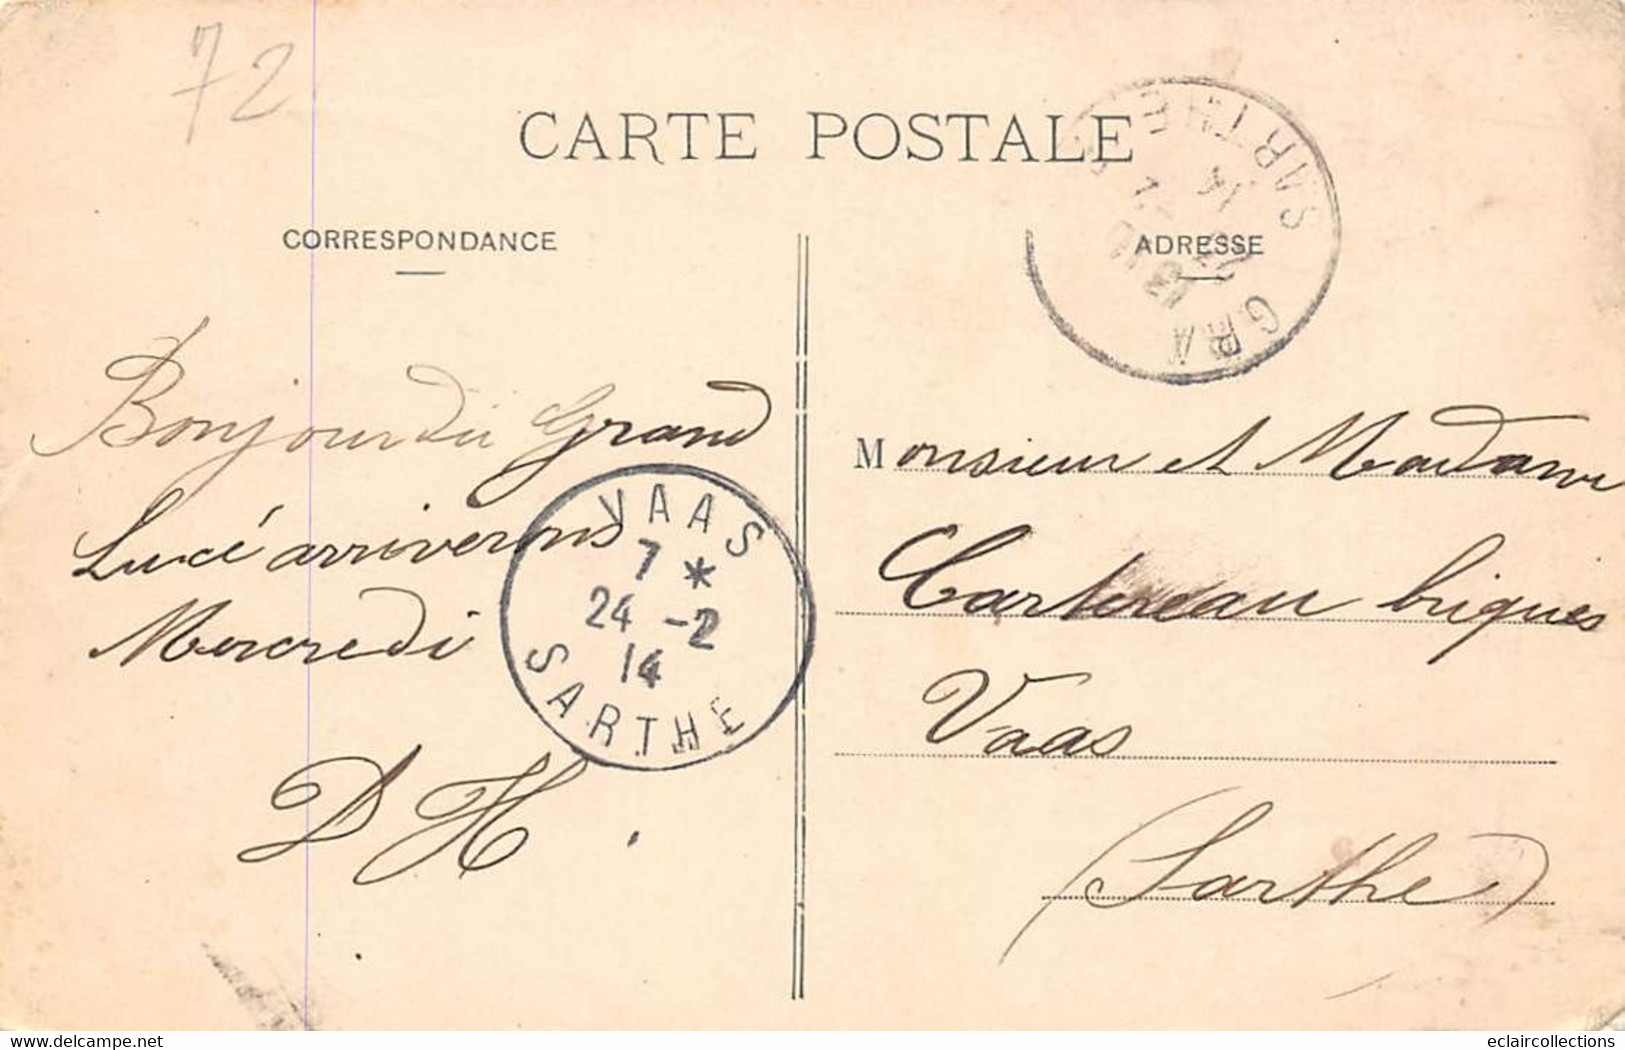 72
CARTE POSTALE
SARTHE
14
GRA
CORRESPONDANCE
ADRESSE
Bonjour du Grand
Lucé arriverons
Mercredi
D H
VAAS
7 *
24 -2
14
SARTHE
Monsieur et Madame
briques
Vaas
(Sarthe)
www.delcampe.net
eclaircollections